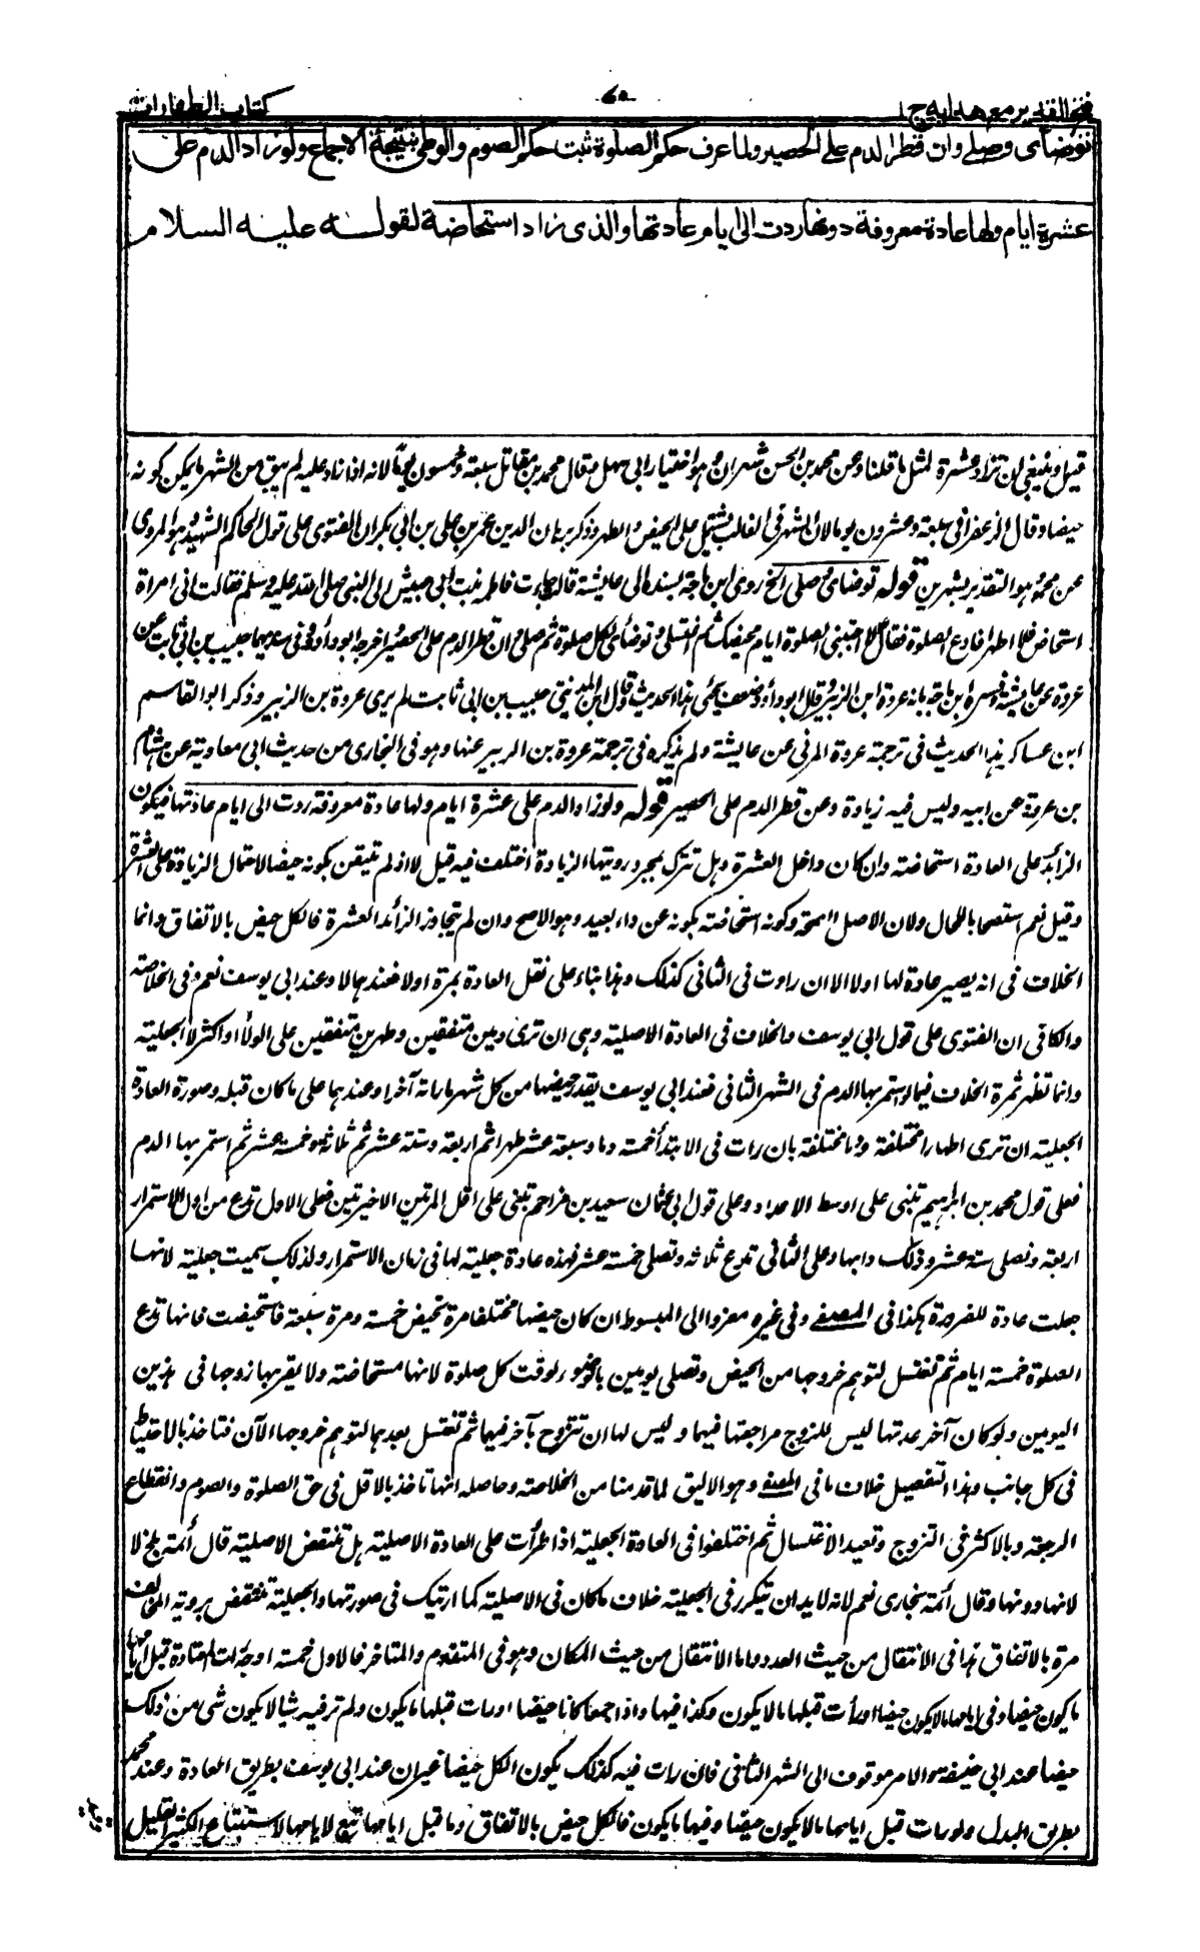 فتح القدير مع هدايه ج ١
٧٥
كتاب الطهارات
توضأى وصلى وان قطر الدم على الحصير ولما عرف حكم الصلوة ثبت حكم الصوم والوطى بنتيجة الاجماع ولو زاد الدم على
عشرة ايام ولها عادة معروفة دونها ردت الى ايام عادتها والذى زاد استحاضة لقوله عليه السلام
قيل وينبغى ان تزاد عشرة لمثل ما قلنا وعن محمد بن الحسن شهران وهو اختيار ابى سهل وقال محمد بن مقاتل سبعة وخمسون يوما لانه اذا زاد عليه لم يبق من الشهر ما يمكن كونه
حيضا وقال الزعفرانى سبعة وعشرون يوما لان الشهر فى الغالب يشتمل على الحيض والطهر وذكر برهان الدين عمر بن على بن ابى بكر ان الفتوى على قول الحاكم الشهيد وهو المروى
عن محمد وهو التقدير بشهرين قوله توضاى وصلى الخ روى ابن ماجة بسنده الى عايشة قالت جاءت فاطمة بنت ابى حبيش الى النبى صلى الله عليه وسلم فقالت انى امراة
استحاض فلا اطهر افادع الصلوة فقال لا اجتنبى الصلوة ايام محيضك ثم اغتسلى وتوضأى لكل صلوة ثم صلى وان قطر الدم على الحصير اخرجه ابو داود وفى سنديهما حبيب بن ابى ثابت عن
عروة عن عايشة وفسره ابن ماجة بانه عروة ابن الزبير وقال ابو داود ضعف يحيى هذا الحديث وقال ابن المدينى حبيب بن ابى ثابت لم يرى عروة بن الزبير وذكر ابو القاسم
ابن عساكر هذا الحديث فى ترجمة عروة المزنى عن عايشة ولم يذكره فى ترجمة عروة بن الزبير عنها وهو فى البخارى من حديث ابى معاوية عن هشام
بن عروة عن ابيه وليس فيه زيادة وعن قطر الدم على الحصير قوله ولو زاد الدم على عشرة ايام ولها عادة معروفة ردت الى ايام عادتها فيكون
الزائد على العادة استحاضة وان كان داخل العشرة وهل تترك بمجرد رويتها الزيادة اختلف فيه قيل لا اذ لم تتيقن بكونه حيضا لاحتمال الزيادة على العشرة
وقيل نعم استصحابا للحال ولان الاصل الصحة وكونه استحاضة بكونه عن داء بعيد وهو الاصح وان لم يتجاوز الزائد العشرة فالكل حيض بالاتفاق وانما
الخلاف فى انه يصير عادة لها اولا الا ان راوت فى الثانى كذلك وهذا بناء على نقل العادة بمرة اولا فعندهما لا وعند ابى يوسف نعم وفى الخلاصة
والكافى ان الفتوى على قول ابى يوسف والخلاف فى العادة الاصلية وهى ان ترى دمين متفقين وطهرين متفقين على الولاء او اكثر لا الجعلية
وانما تظهر ثمرة الخلاف فيما لو استمر بها الدم فى الشهر الثانى فعند ابى يوسف يقدر حيضها من كل شهر ما راته آخرا وعندهما على ما كان قبله وصورة العادة
الجعلية ان ترى اطهارا مختلفة ودما مختلفة بان رات فى الابتداء خمسة دما وسبعة عشر طهرا ثم اربعة وستة عشر ثم ثلاثة وخمسة عشر ثم استمر بها الدم
فعلى قول محمد بن ابراهيم تبنى على اوسط الاعداد وعلى قول ابى عثمان سعيد بن مزاحم تبنى على اقل المرتين الاخيرتين فعلى الاول تدع من اول الاستمرار
اربعة وتصلى ستة عشر وذلك دابها وعلى الثانى تدع ثلاثة وتصلى خمسة عشر فهذه عادة جعلية لها فى زمان الاستمرار ولذلك سميت جعلية لانها
جعلت عادة للضرورة هكذا فى المصفى وفى غيره معزوا الى المبسوط ان كان حيضها مختلفا مرة تحيض خمسة ومرة سبعة فاستحيضت فانها تدع
الصلوة خمسة ايام ثم تغتسل لتوهم خروجها من الحيض وتصلى يومين بالوضوء لوقت كل صلوة لانها مستحاضة ولا يقربها زوجها فى هذين
اليومين ولو كان آخر عدتها ليس للزوج مراجعتها فيهما وليس لها ان تتزوج بآخر فيهما ثم تغتسل بعدهما لتوهم خروجها الآن فتاخذ بالاحتياط
فى كل جانب وهذا التفصيل خلاف ما فى المصفى وهو الاليق لما قدمنا من الخلاصة وحاصله انها تاخذ بالاقل فى حق الصلوة والصوم وانقطاع
الرجعة وبالاكثر فى التزوج وتعيد الاغتسال ثم اختلفوا فى العادة الجعلية اذا طرأت على العادة الاصلية هل تنتقض الاصلية قال أئمة بلخ لا
لانها دونها وقال أئمة بخارى نعم لانه لا بد ان تتكرر فى الجعلية خلاف ما كان فى الاصلية كما اريتك فى صورتها والجعلية تنتقض بروية المخالف
مرة بالاتفاق هذا فى الانتقال من حيث العدد واما الانتقال من حيث المكان وهو فى المتقدم والمتاخر فالاول خمسة اوجه رات المعتادة قبل ايامها
ما يكون حيضا وفى ايامها ما لا يكون حيضا او رأت قبلها ما لا يكون وكذا فيها واذا جمعا كانا حيضا او رات قبلها ما يكون ولم تر فيه شيا لا يكون شى من ذلك
حيضا عند ابى حنيفة والامر موقوف الى الشهر الثانى فان رات فيه كذلك يكون الكل حيضا غير ان عند ابى يوسف بطريق العادة وعند محمد
بطريق البدل ولو رات قبل ايامها ما لا يكون حيضا وفيها ما يكون فالكل حيض بالاتفاق وما قبل ايامها تبع لايامها لاستتباع الكثير القليل